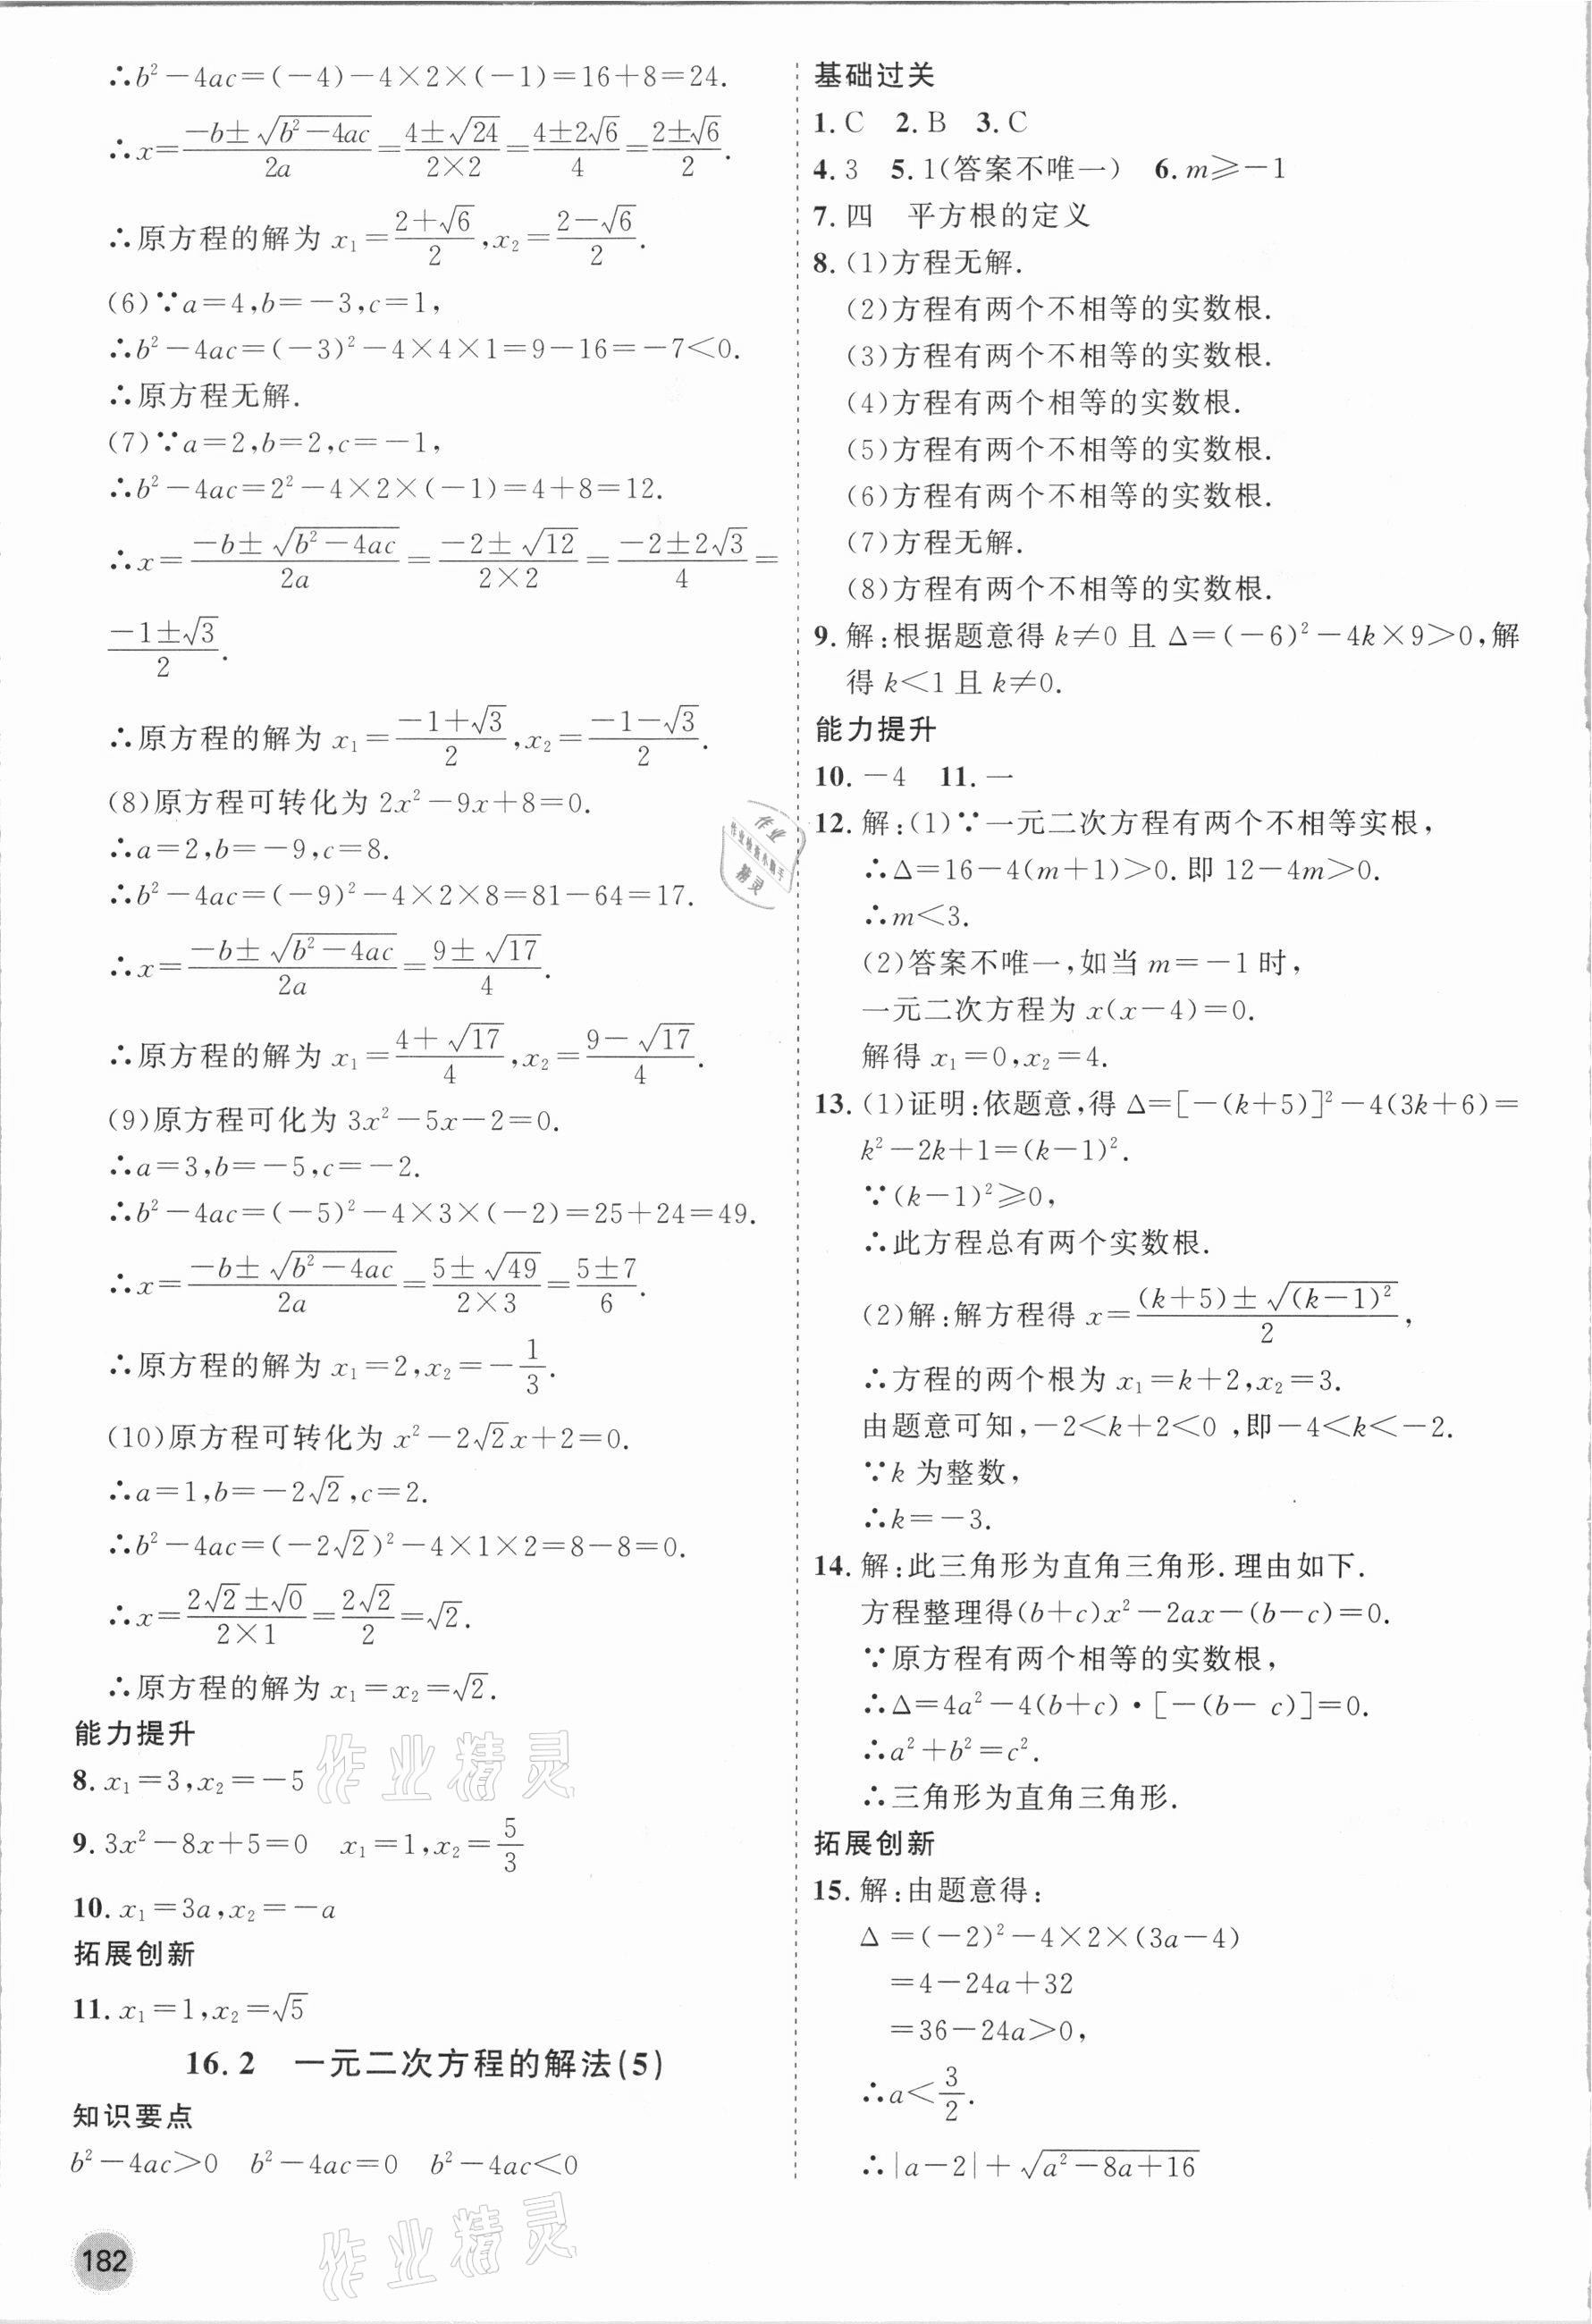 ∴b²－4ac＝(－4)－4×2×(－1)＝16＋8＝24.
∴x＝(－b±√(b²－4ac))/(2a)＝(4±√24)/(2×2)＝(4±2√6)/4＝(2±√6)/2.
∴原方程的解为 x₁＝(2＋√6)/2,x₂＝(2－√6)/2.
(6)∵a＝4,b＝－3,c＝1,
∴b²－4ac＝(－3)²－4×4×1＝9－16＝－7＜0.
∴原方程无解.
(7)∵a＝2,b＝2,c＝－1,
∴b²－4ac＝2²－4×2×(－1)＝4＋8＝12.
∴x＝(－b±√(b²－4ac))/(2a)＝(－2±√12)/(2×2)＝(－2±2√3)/4＝
(－1±√3)/2.
∴原方程的解为 x₁＝(－1＋√3)/2,x₂＝(－1－√3)/2.
(8)原方程可转化为 2x²－9x＋8＝0.
∴a＝2,b＝－9,c＝8.
∴b²－4ac＝(－9)²－4×2×8＝81－64＝17.
∴x＝(－b±√(b²－4ac))/(2a)＝(9±√17)/4.
∴原方程的解为 x₁＝(4＋√17)/4,x₂＝(9－√17)/4.
(9)原方程可化为 3x²－5x－2＝0.
∴a＝3,b＝－5,c＝－2.
∴b²－4ac＝(－5)²－4×3×(－2)＝25＋24＝49.
∴x＝(－b±√(b²－4ac))/(2a)＝(5±√49)/(2×3)＝(5±7)/6.
∴原方程的解为 x₁＝2,x₂＝－1/3.
(10)原方程可转化为 x²－2√2x＋2＝0.
∴a＝1,b＝－2√2,c＝2.
∴b²－4ac＝(－2√2)²－4×1×2＝8－8＝0.
∴x＝(2√2±√0)/(2×1)＝(2√2)/2＝√2.
∴原方程的解为 x₁＝x₂＝√2.
能力提升
8.x₁＝3,x₂＝－5
9.3x²－8x＋5＝0 x₁＝1,x₂＝5/3
10.x₁＝3a,x₂＝－a
拓展创新
11.x₁＝1,x₂＝√5
16.2 一元二次方程的解法(5)
知识要点
b²－4ac＞0 b²－4ac＝0 b²－4ac＜0
182
基础过关
1.C 2.B 3.C
4.3 5.1(答案不唯一) 6.m≥－1
7.四 平方根的定义
8.(1)方程无解.
(2)方程有两个不相等的实数根.
(3)方程有两个不相等的实数根.
(4)方程有两个相等的实数根.
(5)方程有两个不相等的实数根.
(6)方程有两个不相等的实数根.
(7)方程无解.
(8)方程有两个不相等的实数根.
9.解:根据题意得 k≠0 且 Δ＝(－6)²－4k×9＞0,解
得 k＜1 且 k≠0.
能力提升
10.－4 11.一
12.解:(1)∵一元二次方程有两个不相等实根,
∴Δ＝16－4(m＋1)＞0.即 12－4m＞0.
∴m＜3.
(2)答案不唯一,如当 m＝－1 时,
一元二次方程为 x(x－4)＝0.
解得 x₁＝0,x₂＝4.
13.(1)证明:依题意,得 Δ＝[－(k＋5)]²－4(3k＋6)＝
k²－2k＋1＝(k－1)².
∵(k－1)²≥0,
∴此方程总有两个实数根.
(2)解:解方程得 x＝((k＋5)±√((k－1)²))/2,
∴方程的两个根为 x₁＝k＋2,x₂＝3.
由题意可知,－2＜k＋2＜0 ,即－4＜k＜－2.
∵k 为整数,
∴k＝－3.
14.解:此三角形为直角三角形.理由如下.
方程整理得(b＋c)x²－2ax－(b－c)＝0.
∵原方程有两个相等的实数根,
∴Δ＝4a²－4(b＋c)·[－(b－ c)]＝0.
∴a²＋b²＝c².
∴三角形为直角三角形.
拓展创新
15.解:由题意得:
Δ＝(－2)²－4×2×(3a－4)
＝4－24a＋32
＝36－24a＞0,
∴a＜3/2.
∴|a－2|＋√(a²－8a＋16)
作业
作业检查小帮手
精灵
作业精灵
作业精灵